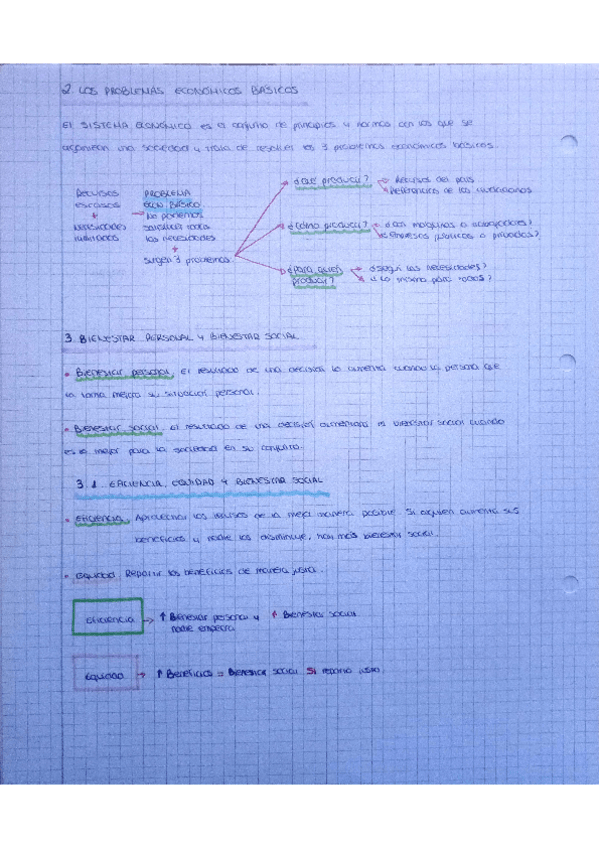 2. LOS PROBLEMAS ECONÓMICOS BÁSICOS
El SISTEMA ECONÓMICO es el conjunto de principios y normas con los que se
organizan una sociedad y trata de resolver los 3 problemas económicos básicos.
Recursos escasos + necesidades ilimitadas
PROBLEMA ECO. BÁSICO
No podemos satisfacer todas las necesidades
+
surgen 3 problemas
¿Qué producir? → Recursos del país
→ Preferencias de los ciudadanos
¿Cómo producir? → ¿Con máquinas o trabajadores?
→ ¿Empresas públicas o privadas?
¿Para quién producir? → ¿Según las necesidades?
→ ¿Lo mismo para todos?
3. BIENESTAR PERSONAL Y BIENESTAR SOCIAL
• Bienestar personal. El resultado de una decisión lo aumenta cuando la persona que
la toma mejora su situación personal.
• Bienestar social. El resultado de una decisión aumentará el bienestar social cuando
es el mejor para la sociedad en su conjunto.
3.1. EFICIENCIA, EQUIDAD Y BIENESTAR SOCIAL
• Eficiencia. Aprovechar los recursos de la mejor manera posible. Si alguien aumenta sus
beneficios y nadie los disminuye, hay más bienestar social.
• Equidad. Repartir los beneficios de manera justa.
Eficiencia → ↑ Bienestar personal y ↑ Bienestar social
nadie empeora
Equidad → ↑ Beneficios = Bienestar social Si reparto justo.